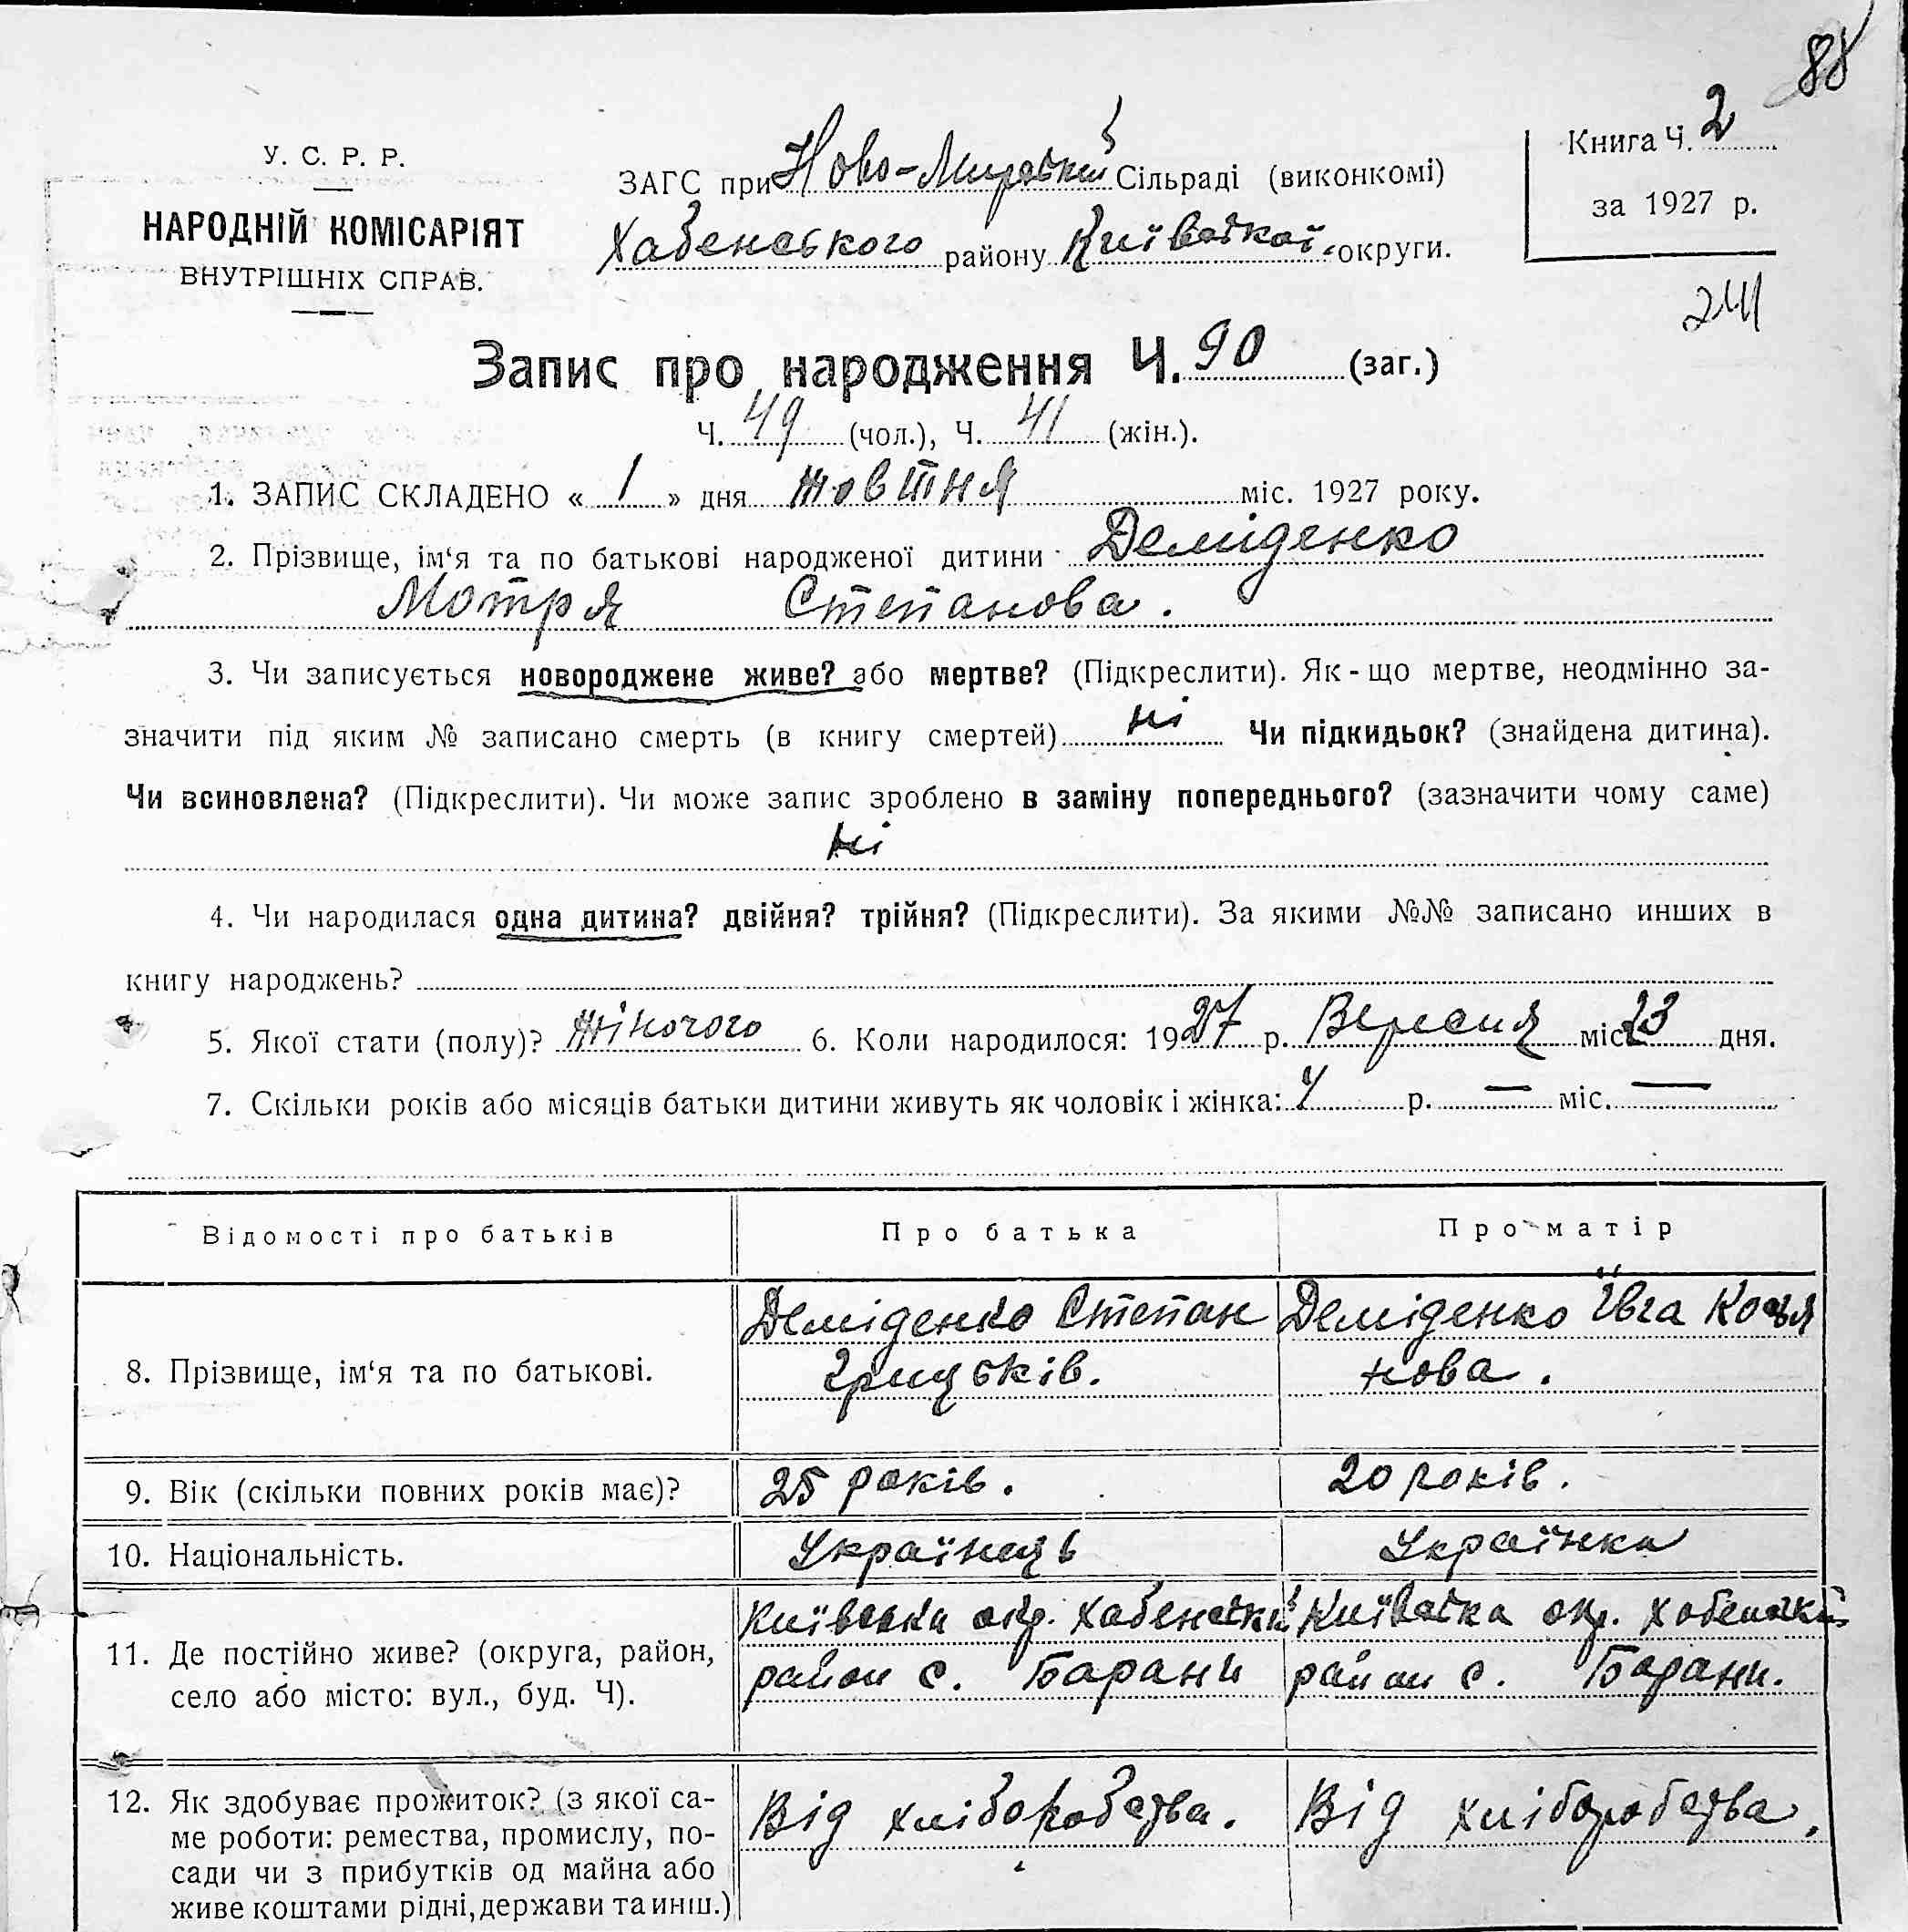 88
У. С. Р. Р.
НАРОДНІЙ КОМІСАРІЯТ
ВНУТРІШНІХ СПРАВ.
ЗАГС при Ново-Мирській Сільраді (виконкомі)
Хабенського району Київської округи.
Книга Ч. 2
за 1927 р.
241
Запис про народження Ч. 90 (заг.)
Ч. 49 (чол.), Ч. 41 (жін.).
1. ЗАПИС СКЛАДЕНО « 1 » дня жовтня міс. 1927 року.
2. Прізвище, ім‘я та по батькові народженої дитини Деміденко
Мотря Степанова.
3. Чи записується новороджене живе? або мертве? (Підкреслити). Як-що мертве, неодмінно за-
значити під яким № записано смерть (в книгу смертей) ні Чи підкидьок? (знайдена дитина).
Чи всиновлена? (Підкреслити). Чи може запис зроблено в заміну попереднього? (зазначити чому саме)
ні
4. Чи народилася одна дитина? двійня? трійня? (Підкреслити). За якими №№ записано инших в
книгу народжень?
5. Якої стати (полу)? жіночого 6. Коли народилося: 1927 р. Вересня міс. 23 дня.
7. Скільки років або місяців батьки дитини живуть як чоловік і жінка: 4 р. — міс. —
Відомості про батьків
Про батька
Про матір
8. Прізвище, ім‘я та по батькові.
Деміденко Степан
Грицьків.
Деміденко Ївга Косья
нова.
9. Вік (скільки повних років має)?
25 років.
20 років.
10. Національність.
Українець
Українка
11. Де постійно живе? (округа, район,
село або місто: вул., буд. Ч).
Київська окр. Хабенський
район с. Барани
Київська окр. Хабенський
район с. Барани.
12. Як здобуває прожиток? (з якої са-
ме роботи: ремества, промислу, по-
сади чи з прибутків од майна або
живе коштами рідні, держави та инш.)
Від хліборобства.
Від хліборобства.